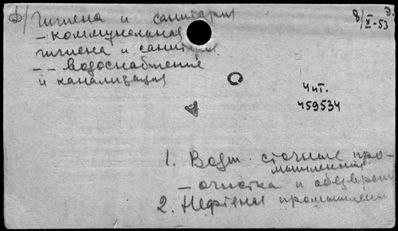 ф/ Гигиена и санитария
8/X-53
- коммунальная
гигиена и санитария.
- - водоснабжение
и канализация
Чит.
459534
1. Воды сточные про-
мышленные
- очистка и обезвреж
2. Нефтяная промышленн